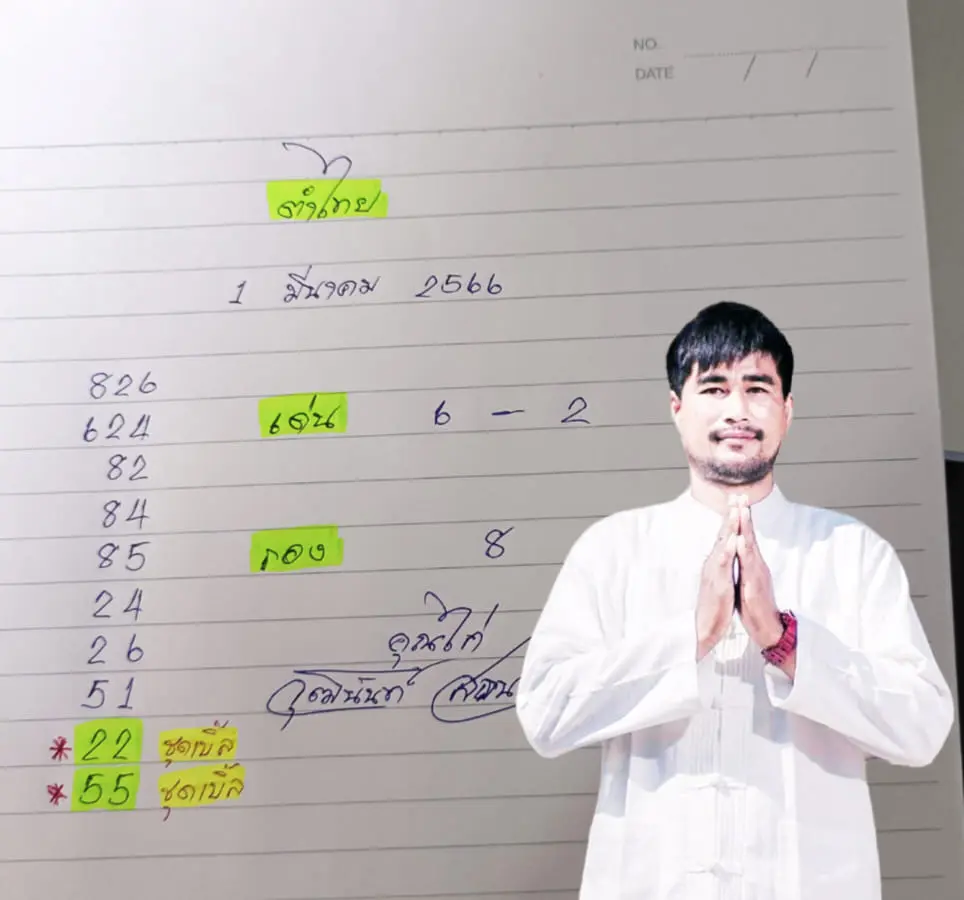 NO.
DATE / /
ดำไทย
1 มีนาคม 2566
826
624 เด่น 6 - 2
82
84
85 รอง 8
24
26 คุณไก่
51 วุฒินันท์
*22 ชุดเบิ้ล
*55 ชุดเบิ้ล